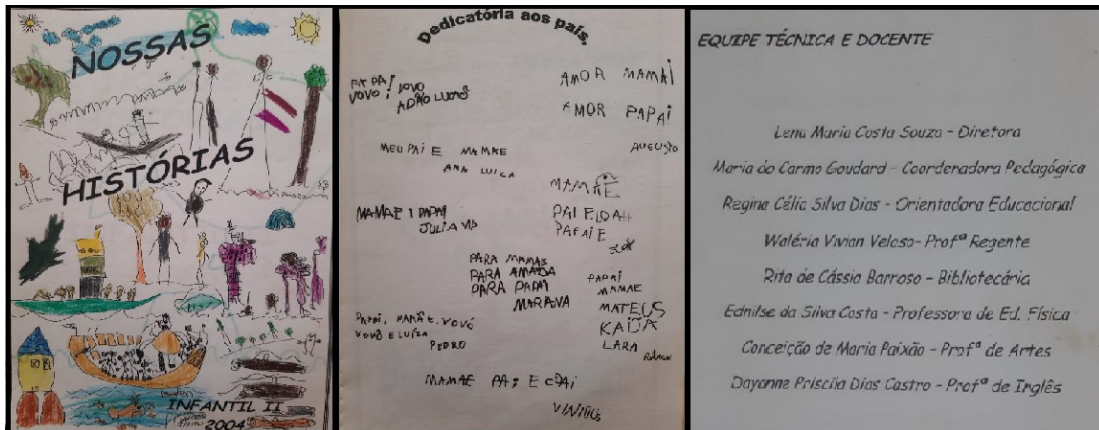 NOSSAS
HISTÓRIAS
INFANTIL II
2004
Dedicatória aos país,
PAPAI VOVO
VOVO
AMOR MAMAI
AMOR PAPAI
AUGUSTO
MEU PAI E MAMAE
ANA LUIZA
MAMÃE
PAI
PAPAI E
MAMAE I PAPAI
JULIA
PARA MAMAS
PARA AMADA
PARA PAPAI
MARANA
PAPAI
MAMAE
MATEUS
KAÜA
LARA
PAPAI, MAMÃE, VOVÓ
VOVÔ E LUÍZA
PEDRO
MAMAE PAI E
VINICIUS
EQUIPE TÉCNICA E DOCENTE
Lena Maria Costa Souza - Diretora
Maria do Carmo Goudard - Coordenadora Pedagógica
Regina Célia Silva Dias - Orientadora Educacional
Waléria Vivian Veloso- Profª Regente
Rita de Cássia Barroso - Bibliotecária
Ednilse da Silva Costa - Professora de Ed. Física
Conceição de Maria Paixão - Profª de Artes
Dayanne Priscila Dias Castro - Profª de Inglês